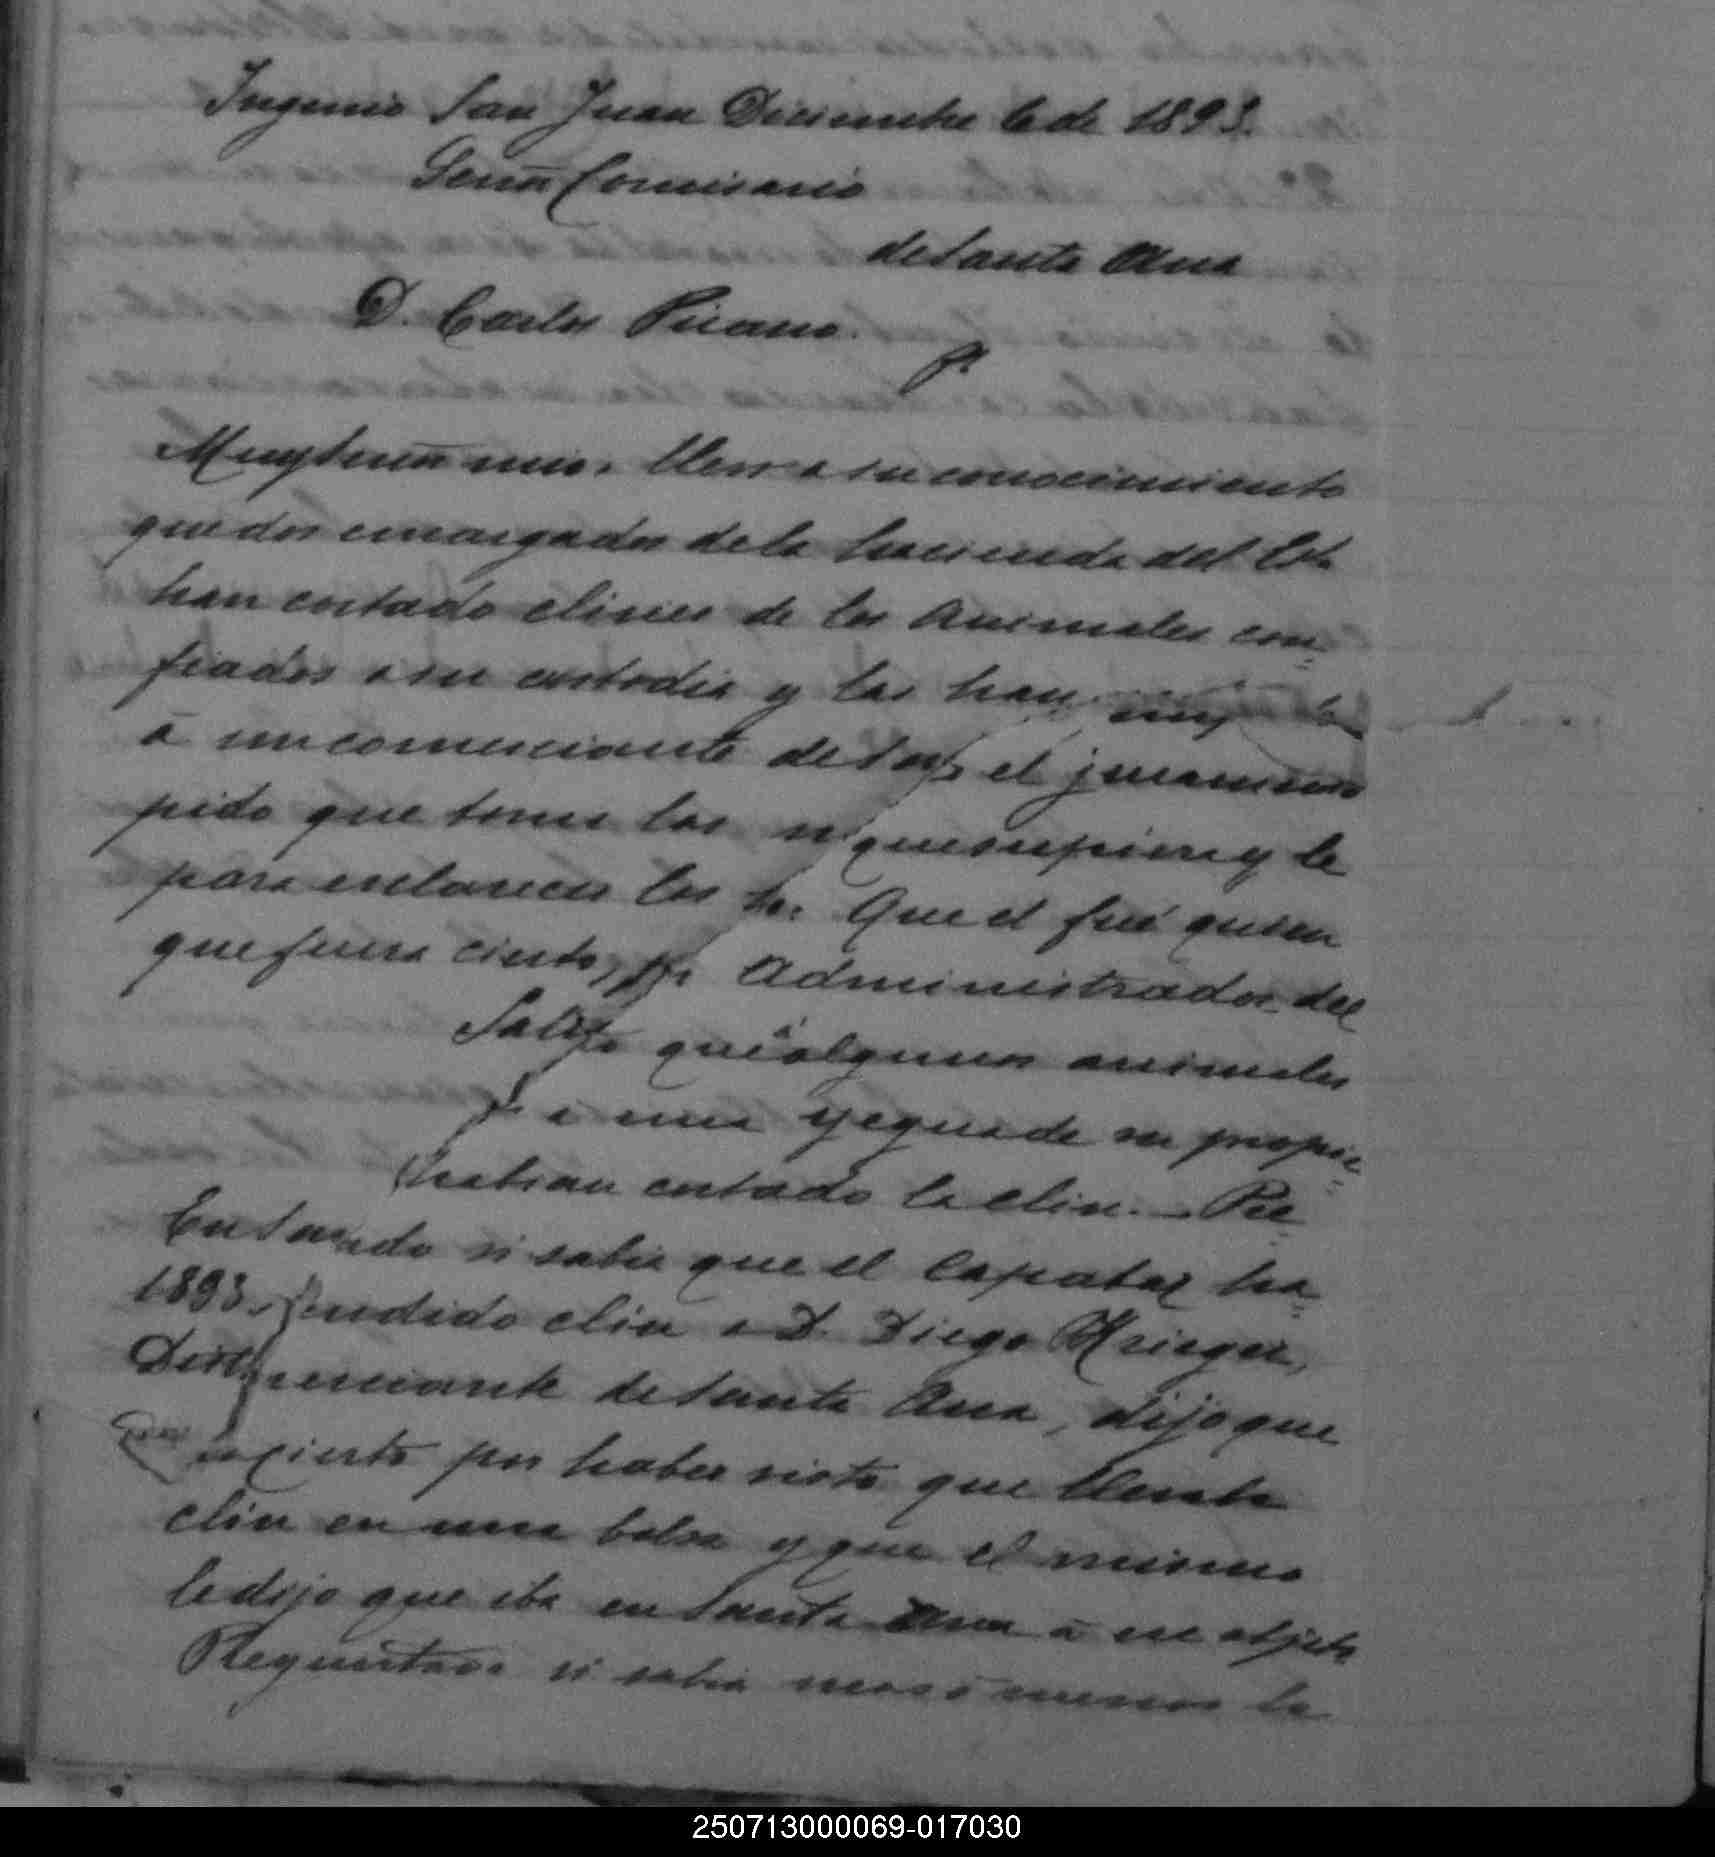 Ingenio San Juan Diciembre 6 de 1893.
Señor Comisario
de Santa Ana
D. Carlos
Muy Señor mio. Llevo a su conocimiento
que dos encargados de la hacienda del
han cortado clines de los animales con-
fiados a su custodia y las han
á un comerciante de San el juramento
pido que tome las que supiere y le
para esclarecer los he. Que el fué quien
que fuera cierto, Administrador del
que á algunos animales
a una yegua de su propie-
habian cortado la clin. - Pre-
do si sabia que el Capataz ha-
1893. vendido clin a D. Diego Krieger,
comerciante de Santa Ana, dijo que
cierto por haber visto que llevaba
clin en una bolsa y que el mismo
le dijo que iba en Santa Ana á ese objeto
Preguntado si sabia mas ó menos la
250713000069-017030